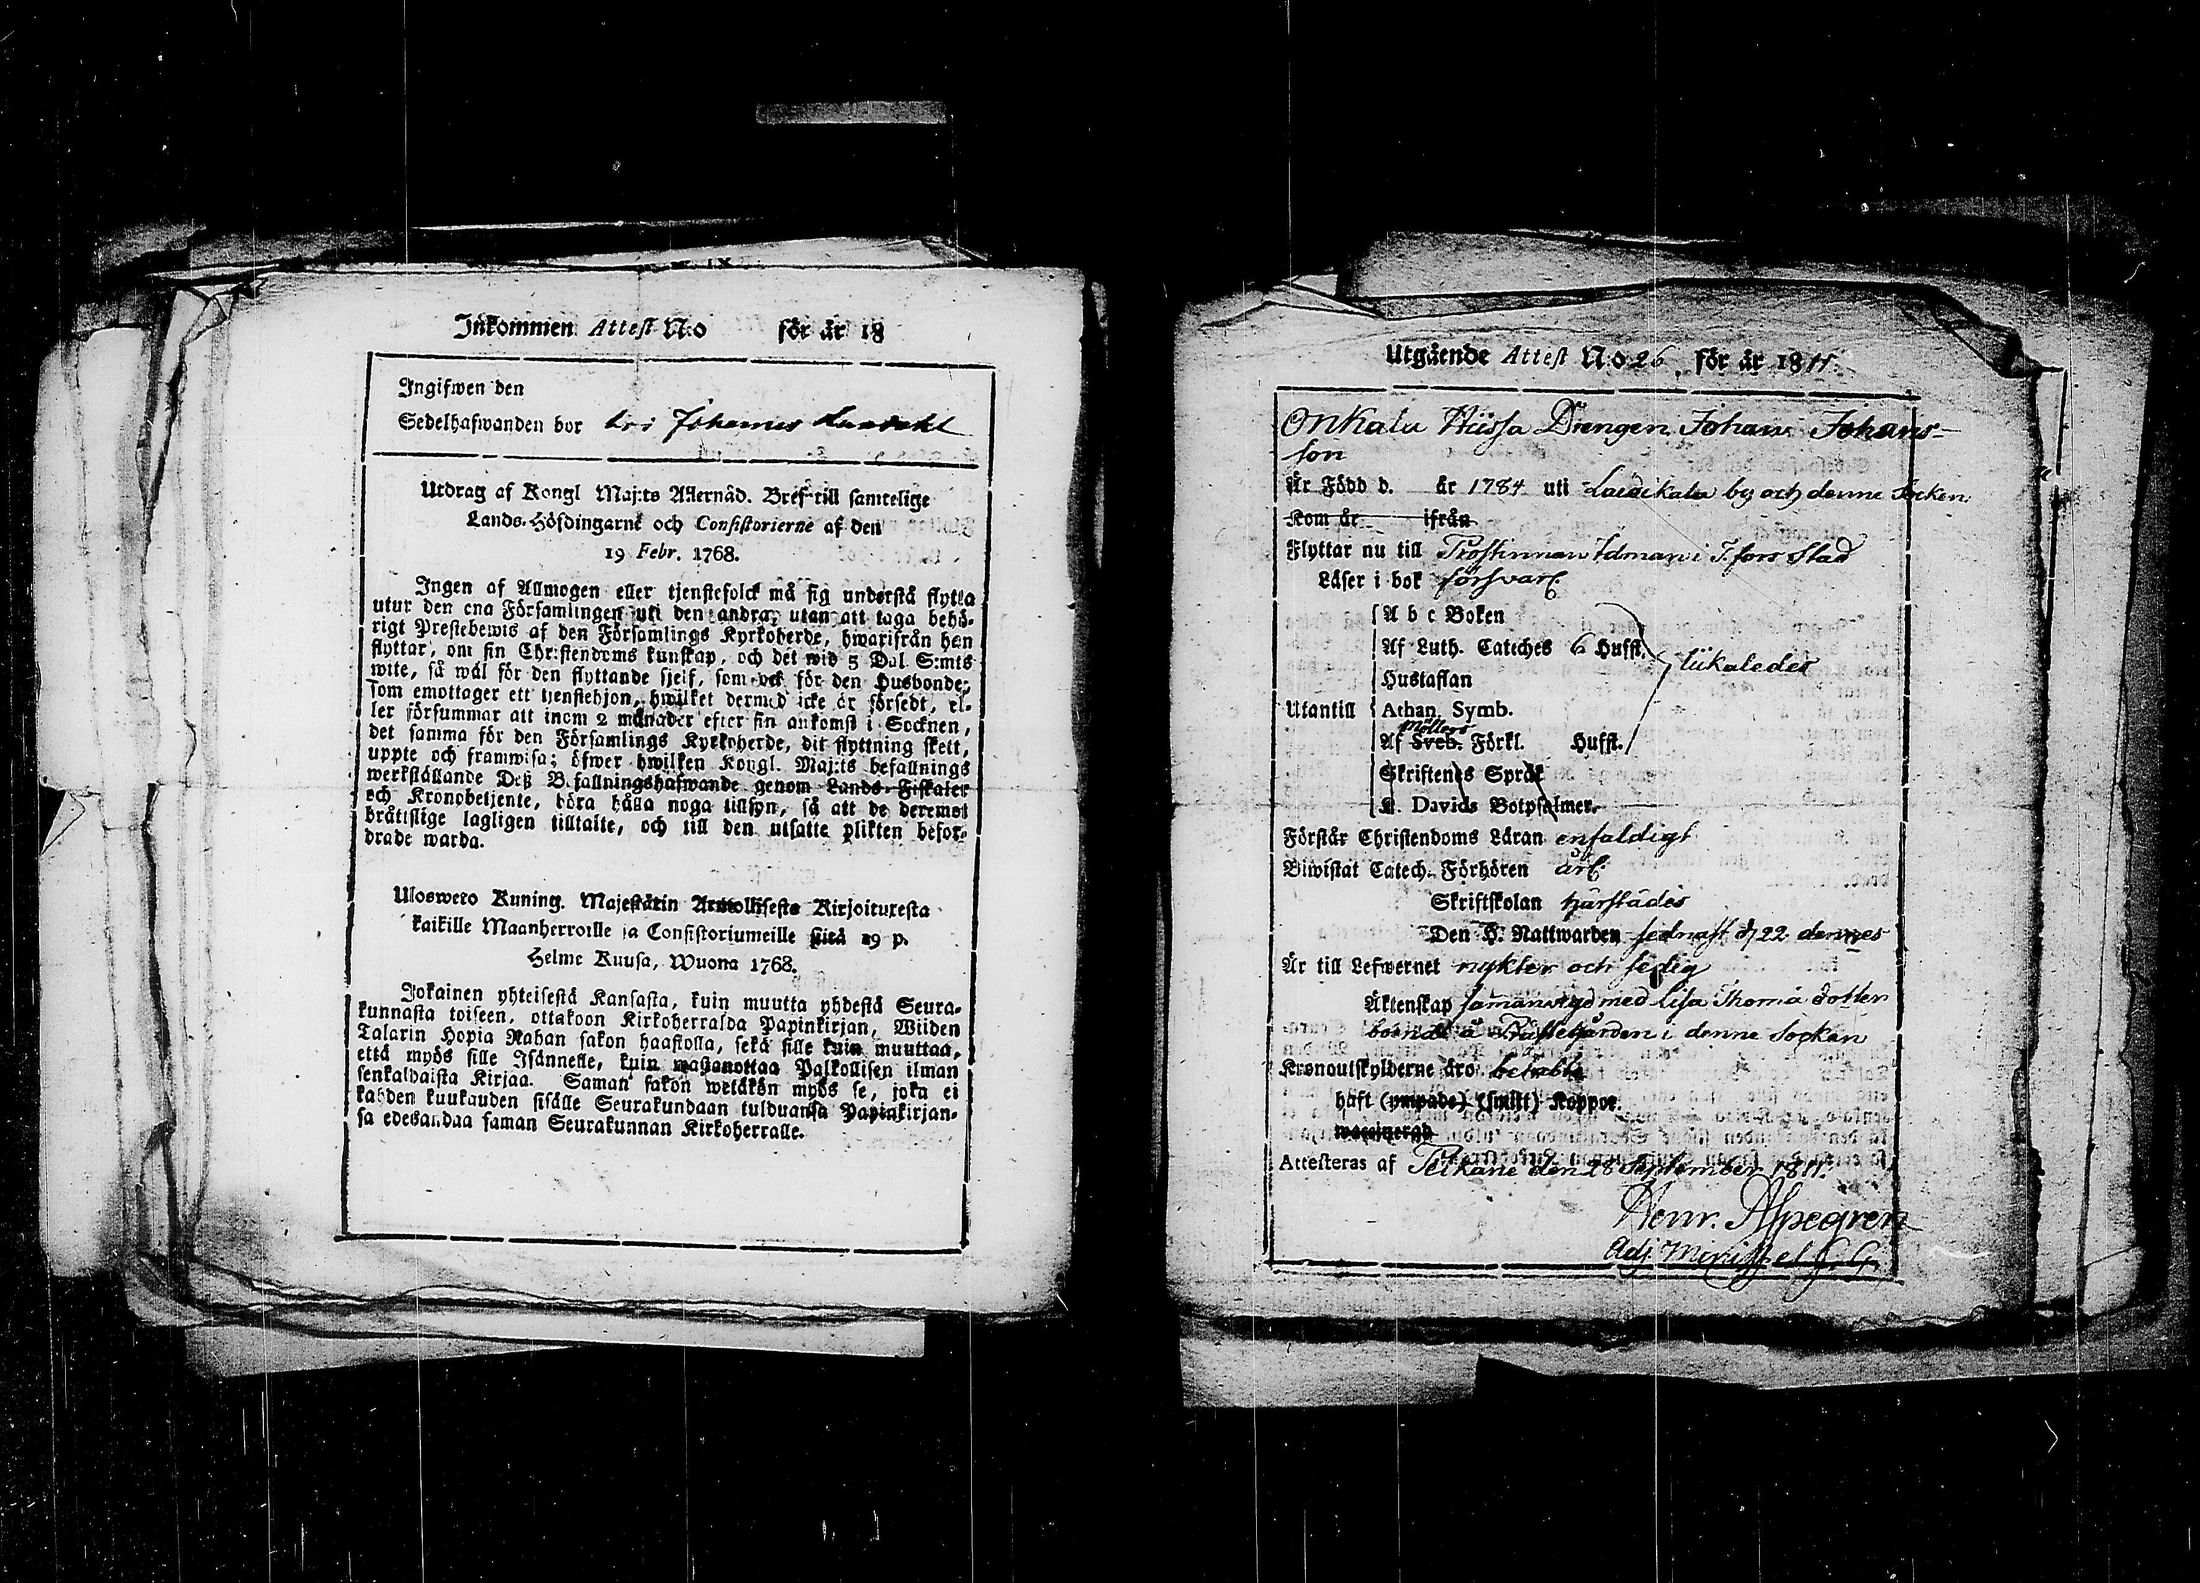 Inkommen Attest N:o för år 18
Ingifwen den
Sedelhafwanden bor hos Johannes
Utdrag af Kongl Maj:ts Allernåd. Bref till samtelige
Lands-Höfdingarne och Consistorierne af den
19 Febr. 1768.
Ingen af Allmogen eller tjenstefolck må sig understå flytta
utur den ena Församlingen uti den andra, utan att taga behö-
rigt Prestebewis af den Församlings Kyrkoherde, hwarifrån han
flyttar, om sin Christendoms kunskap, och det wid 5 Dal S:mts
wite, så wäl för den flyttande sjelf, som ock för den Husbonde,
som emottager ett tjenstehjon, hwilket dermed icke är försedt, el-
ler försummar att inom 2 månader efter sin ankomst i Socknen,
det samma för den Församlings Kyrkoherde, dit flyttning skett,
uppte och framwisa; öfwer hwilken Kongl. Maj:ts befallnings
werkställande Deß Befallningshafwande genom Lands-Fiskaler
och Kronobetjente, böra hålla noga tillsyn, så att de deremot
bråttslige lagligen tilltalte, och till den utsatte plikten befor-
drade warda.
Ulosweto Kuning. Majestätin Armollisesta Kirjoituxesta
kaikille Maanherroille ja Consistoriumeille siitä 19 p.
Helme Kuusa, Wuona 1768.
Jokainen yhteisestä Kansasta, kuin muutta yhdestä Seura-
kunnasta toiseen, ottakoon Kirkoherralda Papinkirjan, Wiiden
Talarin Hopia Rahan sakon haastolla, sekä sille kuin muuttaa,
että myös sille Isännelle, kuin wastanottaa Palkollisen ilman
senkaldaista Kirjaa. Saman sakon wetäkön myös se, joka ei
kahden kuukauden sisälle Seurakundaan tulduansa Papinkirjan-
sa edesandaa saman Seurakunnan Kirkoherralle.
Utgående Attest N:o 26. för år 1811.
Onkala Hiissa Drengen Johan Johans-
son
Är Född d. år 1784 uti Laidikala by och denne Socken
Kom år ifrån
Flyttar nu till Idman i T.fors Stad
Läser i bok försvarl.
A b c Boken
Af Luth. Cateches 6 Hufst.
Hustaflan
likaledes
Utantill Athan. Symb.
Möllers
Af Sveb. Förkl. Hufst.
Skriftenes Språk
K. Davids Botpsalmer.
Förstår Christendoms Läran enfaldigt
Biwistat Catech. Förhören årl.
Skriftskolan härstädes
Den H. Nattwarden sednast d 22 dennes
Är till Lefwernet nykter och sedig
Äktenskap sammanvigd med Lisa Thomæ dotter
boende å Prästegården i denne Socken
Kronoutskylderne äro betalte
haft (ympade) (smitt) Koppor.
waccinerad
Attesteras af Pelkäne den 28 September 1811.
Henr. Aspegren
Adj. Minist.